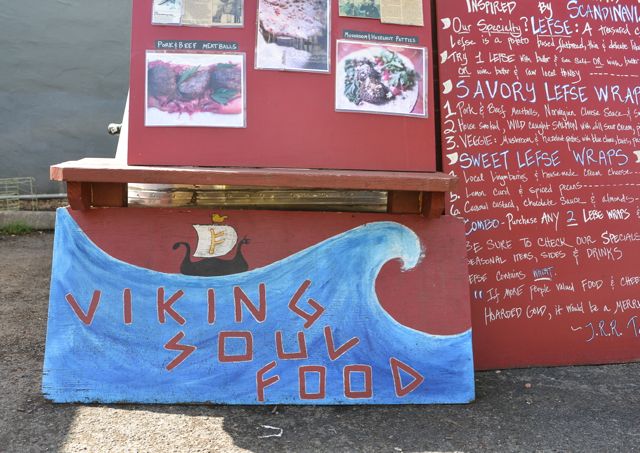 PORK & BEEF MEATBALLS
MUSHROOM & HAZELNUT PATTIES
VIKING
SOUL
FOOD
INSPIRED by SCANDINAVIA
Our Specialty? LEFSE: A treasured
Lefse is a potato based flatbread, thin & delicate
TRY 1 LEFSE with butter & sea salt OR wine, butter
OR wine, butter & raw local honey
SAVORY LEFSE WRAPS
1. Pork & Beef Meatballs, Norwegian Cheese Sauce &
2. House smoked, WILD caught SALMON with dill sour cream,
3. VEGGIE: Mushroom & hazelnut patties with blue cheese,
SWEET LEFSE WRAPS
4. Local Lingonberries & housemade cream cheese
5. Lemon Curd & spiced pecans
6. Caramel custard, chocolate Sauce & almonds
COMBO - Purchase ANY 2 LEFSE WRAPS
BE SURE TO CHECK OUR SPECIALS
SEASONAL ITEMS, SIDES & DRINKS
LEFSE Contains WHEAT.
"If MORE people Valued FOOD & CHEE
HOARDED GOLD, it would be A MERR
J.R.R. T